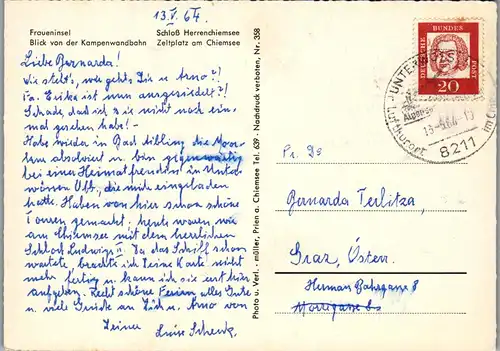 13.V. 64.
Fraueninsel
Blick von der Kampenwandbahn
Schloß Herrenchiemsee
Zeltplatz am Chiemsee
Liebe Bernarda!
Wie steht's, wie geht's Dir u Arno?!
Fa. Erika ist nun ausgesiedelt?!
Schade, daß ich sie nicht noch ein-
mal gesehen habe! -
Habe wieder in Bad Aibling die Moor-
absolviert u. bin gegenwärtig
bei einer Heimatfreundin in Unter-
wössen Obb., die mich eingeladen
hatte. Haben von hier schon schöne
Touren gemacht. heute waren wir
am Chiemsee mit dem herrlichen
Schloß Ludwigs II. Da das Schiff schon
wartete, brachte ich Deine Karte nicht
mehr fertig u kann ich sie erst hier
aufgeben. Recht schöne Ferien alles Gute
u. viele Grüße an Dich u. Arno von
Deiner
Luise Schenk.
Photo u. Verl. - müller, Prien a. Chiemsee Tel. 639 - Nachdruck verboten, Nr. 358
DEUTSCHE BUNDESPOST
20
UNTERWÖSSEN
Luftkurort
8211
Bernarda Terlitza,
Graz, Österr.
Herman Bahrgasse 8